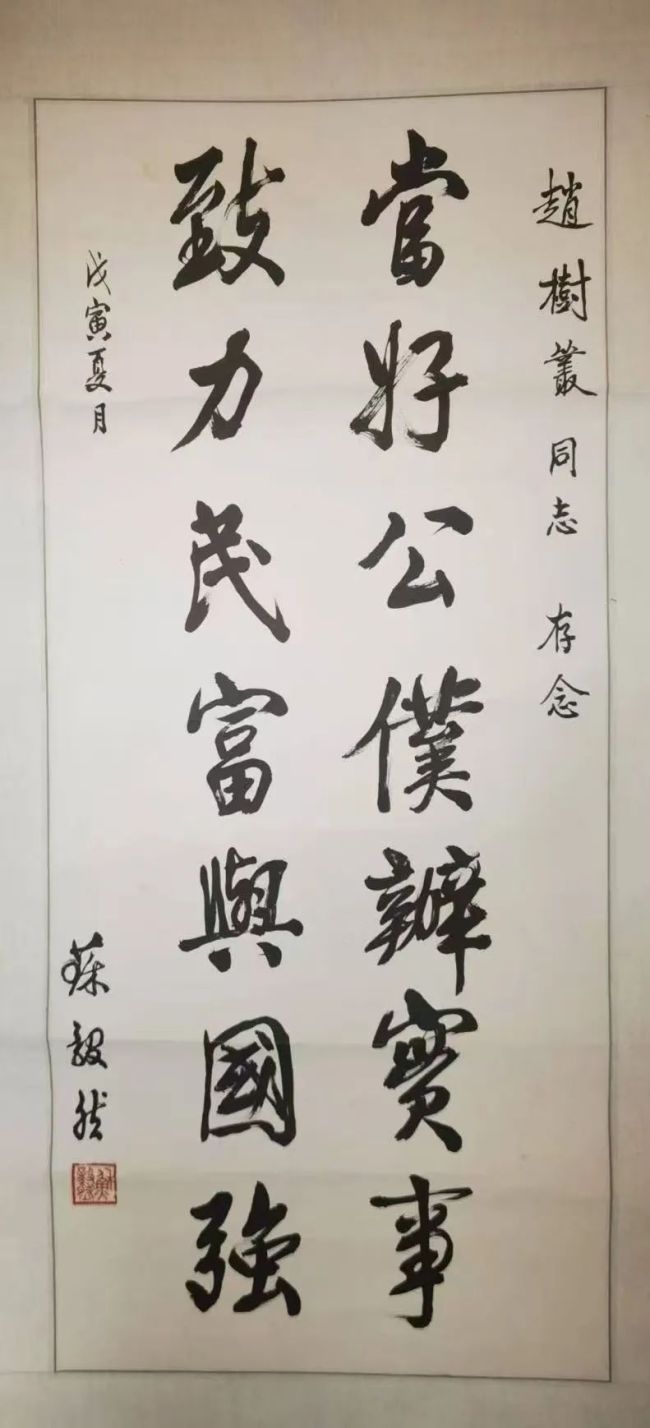 趙樹叢同志 存念
當好公僕辦實事
致力民富與國強
戊寅夏月
蘇毅然